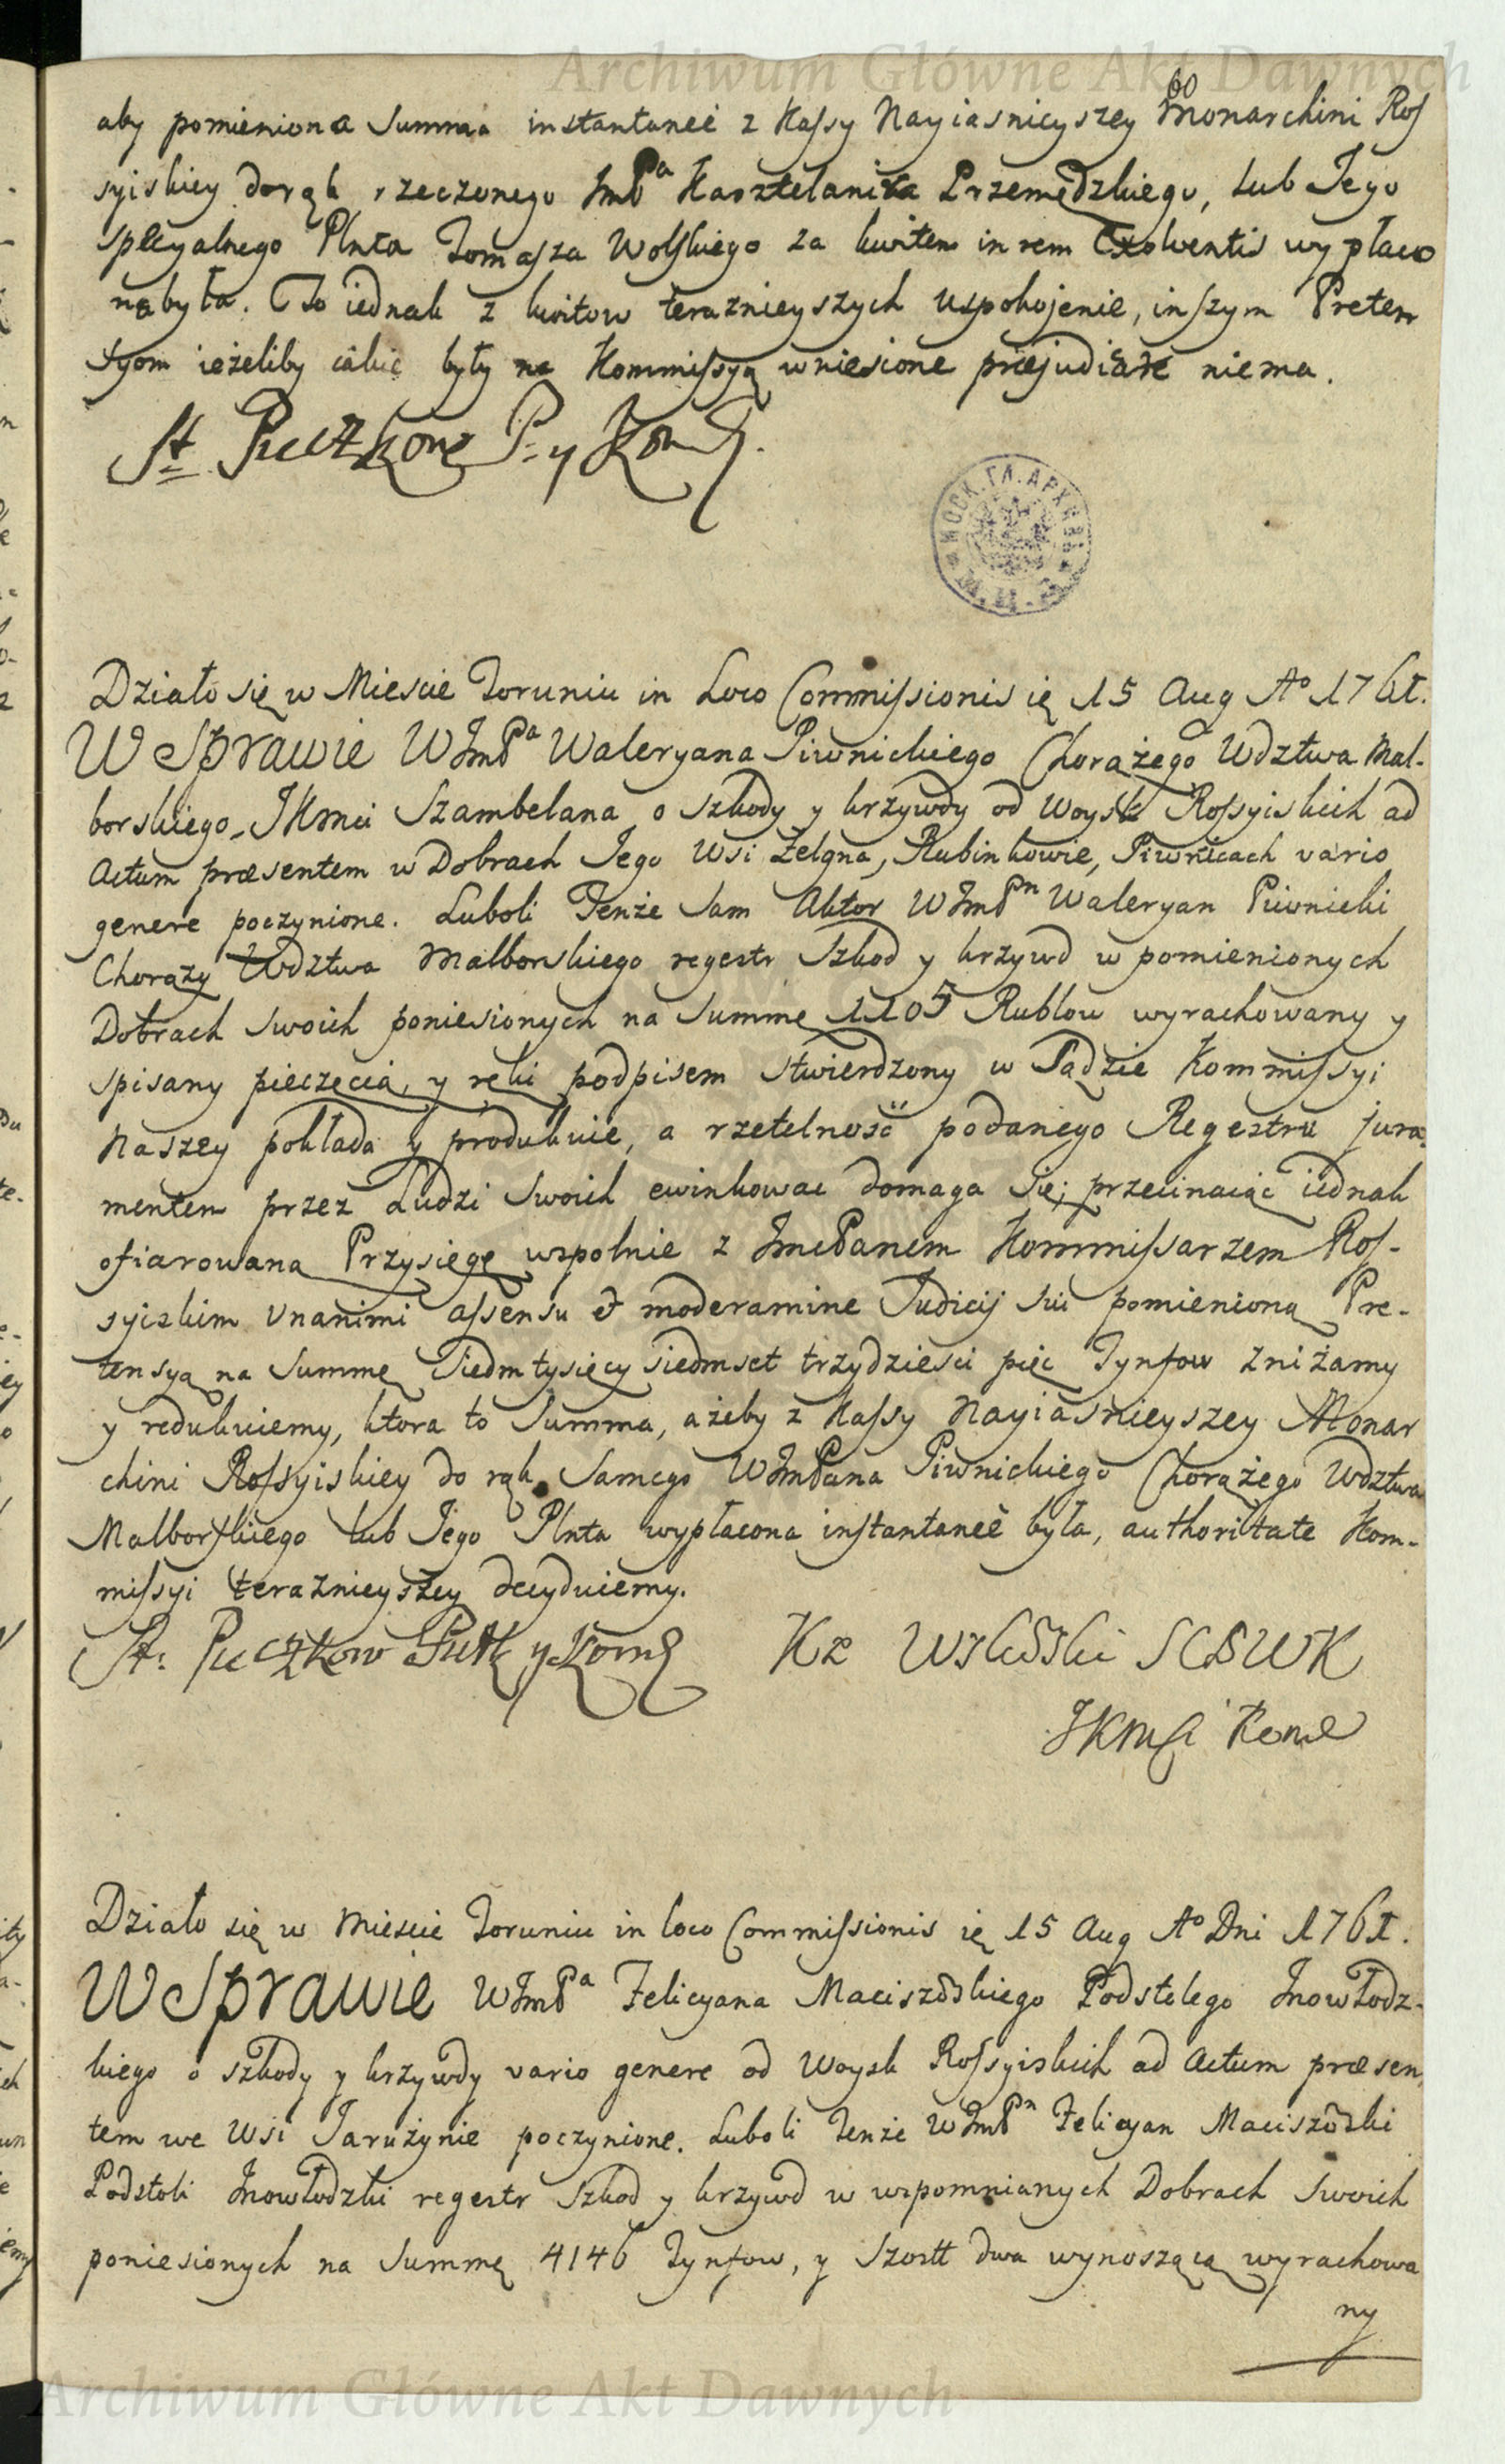 Archiwum Główne Akt Dawnych
60
aby pomieniona Summa instantanee z Kassy Nayiasnieyszey Monarchini Ros
syiskiey do rąk rzeczonego JmPa Kasztelanica Przemędzkiego, lub Jego
specyalnego Plnta Tomasza Wolskiego za kwitem in rem Exolventis wypłaco
na była. To iednak z kwitow teraznieyszych uspokojenie, inszym Preten
syom ieżeliby iakie były na Kommissyą wniesione præjudicare niema.
St Pieczkow P. y Kom
МОСК. ГЛ. АРХИВЪ М. И. Д.
Działo się w Miescie Toruniu in Loco Commissionis ię 15 Aug Ao 1761.
W Sprawie WJmPa Waleryana Piwnickiego Chorążego Wdztwa Mal-
borskiego JKmci Szambelana o szkody y krzywdy od Woysk Rossyiskich ad
Actum præsentem w Dobrach Jego Wsi Zelgna, Rubinkowie, Piwnicach vario
genere poczynione. Luboli Tenże Sam Aktor WJmPn Waleryan Piwnicki
Chorąży Wdztwa Malborskiego regestr Szkod y krzywd w pomienionych
Dobrach swoich poniesionych na Summę 1105 Rublow wyrachowany y
spisany pieczęcią y ręki podpisem stwierdzony w Sądzie Kommissyi
Naszey pokłada y produkuie, a rzetelność podanego Regestru jura-
mentem przez Ludzi Swoich ewinkowac domaga się; przecinaiąc iednak
ofiarowaną Przysięgę wspolnie z JmcPanem Kommissarzem Ros-
syiskim Unanimi assensu et moderamine Judicij Sui pomienioną Pre-
tensyą na Summę Siedmtysięcy siedmset trzydziesci pięc Tynfow zniżamy
y redukuiemy, ktora to Summa, ażeby z Kassy Nayiasnieyszey Monar
chini Rossyiskiey do rąk Samego WJmPana Piwnickiego Chorążego Wdztwa
Malborskiego lub Jego Plnta wypłacona instantanee była, authoritate Kom-
missyi teraznieyszey decyduiemy.
St: Pieczkow Putk y Kom
Kz Wsl SCBWK
JKMci Kom
Działo się w Miescie Toruniu in loco Commissionis ię 15 Aug Ao Dni 1761.
W Sprawie WJmPa Felicyana Maciszoskiego Podstolego Jnowłodz-
kiego o szkody y krzywdy vario genere od Woysk Rossyiskich ad Actum præsen
tem we Wsi Jarużynie poczynione. Luboli Tenże WJmPn Felicyan Maciszoski
Podstoli Jnowłodzki regestr Szkod y krzywd w wspomnianych Dobrach swoich
poniesionych na Summę 4146 Tynfow, y Szostt dwa wynoszącą wyrachowa
ny
Archiwum Główne Akt Dawnych